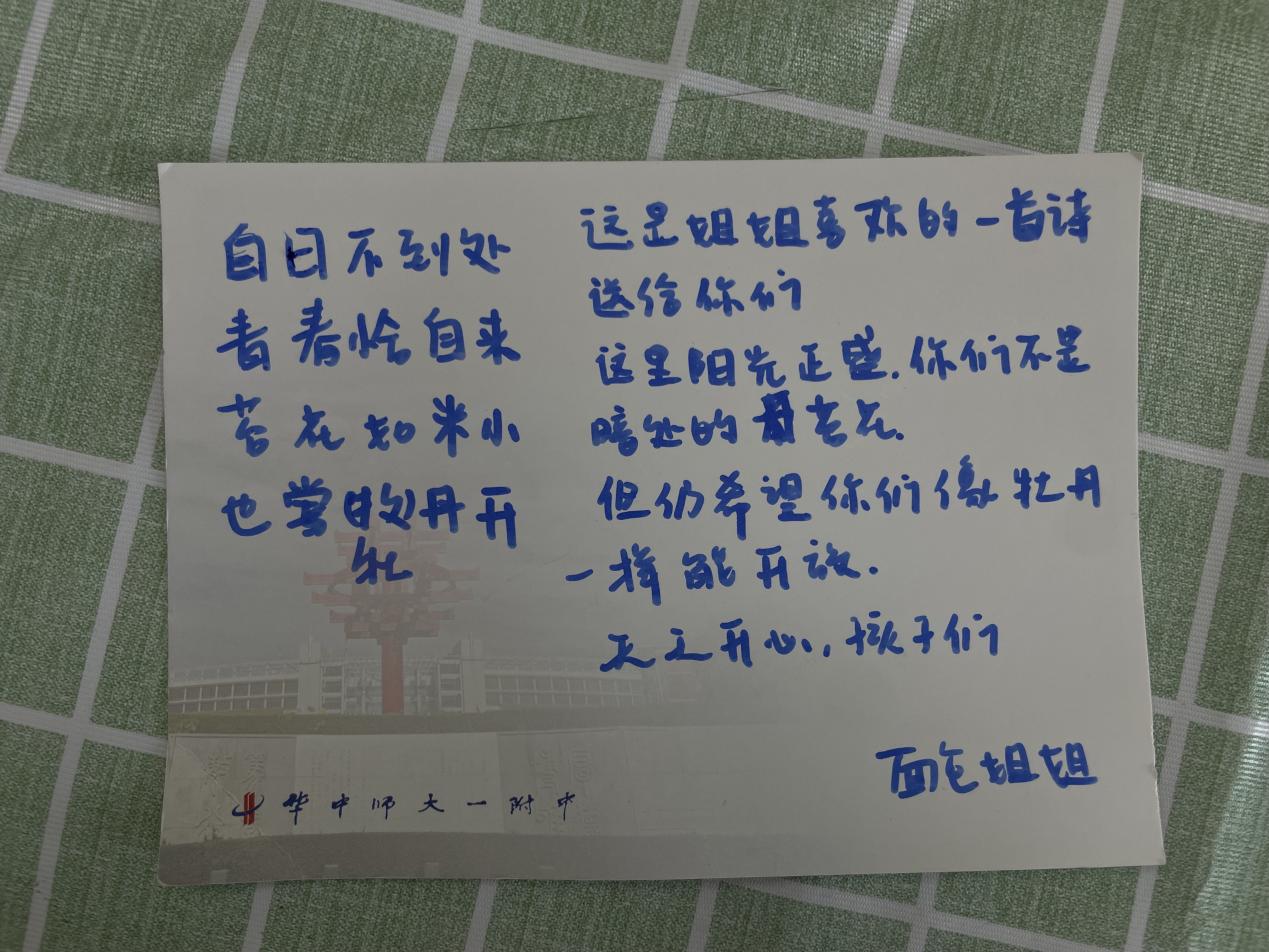 白日不到处
青春恰自来
苔花如米小
也学牡丹开
这是姐姐喜欢的一首诗
送给你们
这里阳光正盛.你们不是
暗处的苔花.
但仍希望你们像牡丹
一样能开放.
天天开心,孩子们
面包姐姐
华中师大一附中